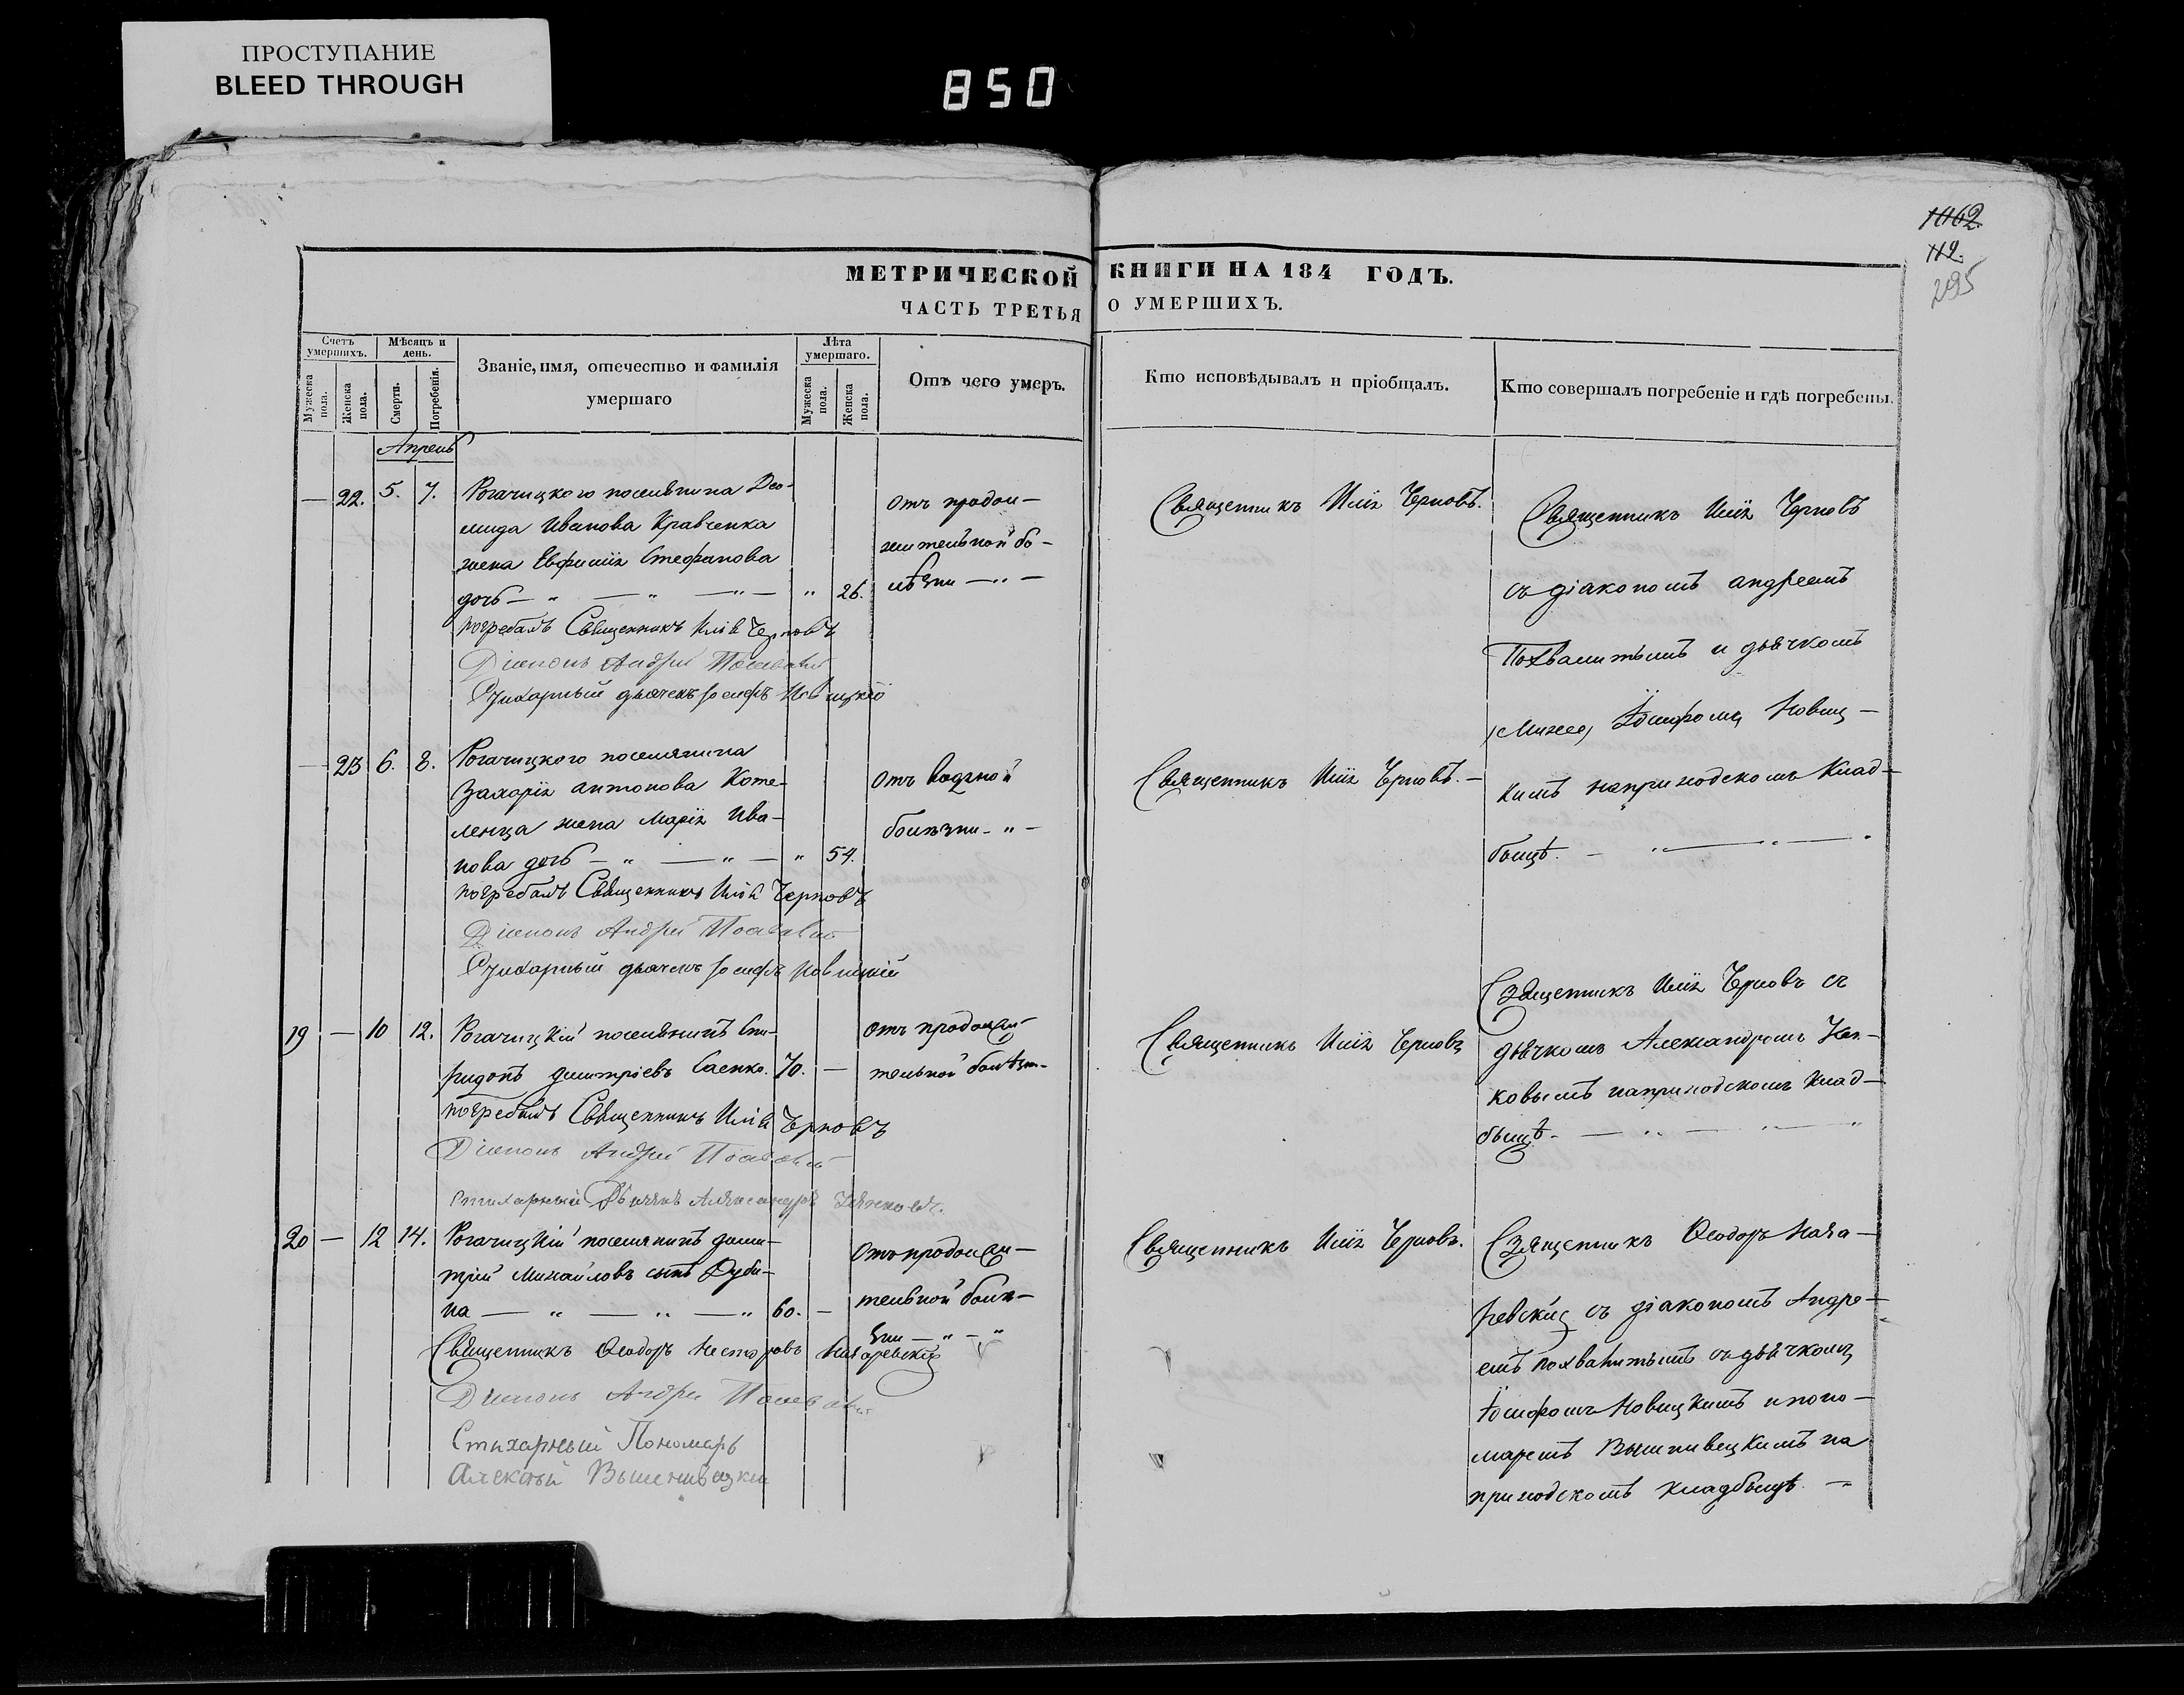 ПРОСТУПАНИЕ
BLEED THROUGH
850
1062
112.
295
МЕТРИЧЕСКОЙ КНИГИ НА 184 ГОДЪ.
ЧАСТЬ ТРЕТЬЯ О УМЕРШИХЪ.
Счетъ умершихъ.
Мужеска пола.
Женска пола.
Мѣсяцъ и день.
Смерти.
Погребенія.
Званіе, имя, отечество и фамилія умершаго
Лѣта умершаго.
Мужеска пола.
Женска пола.
Отъ чего умеръ.
Кто исповѣдывалъ и пріобщалъ.
Кто совершалъ погребеніе и гдѣ погребены.
Апрель
— 22. 5. 7.
Рогачицкого поселянина Део-
мида Иванова Кравченка
жена Евфимія Стефанова
дочь — " — " — " — " 26.
погребалъ Священникъ Илія Черновъ
Діаконъ Андрей
Стихарный дьячекъ Іосифъ Новицкій
отъ продол-
жительной бо-
лѣзни — " —
Священникъ Илія Черновъ.
Священникъ Илія Черновъ
съ діакономъ андреемъ
Похвалитымъ и дьячкомъ
Іосифомъ Новиц-
кимъ на приходскомъ клад-
бищѣ. — " — " — "
— 23 6. 8.
Рогачицкого поселянина
Захарія антонова Коте-
ленца жена Марія Ива-
нова дочь — " — " — " 54.
погребалъ Священникъ Илія Черновъ
Діаконъ Андрей
Стихарный дьячекъ Іосифъ Новицкій
отъ водяной
болѣзни — " —
Священникъ Илія Черновъ. —
19 — 10 12.
Рогачицкій поселянинъ Спи-
ридонъ димитріевъ Саенко. 70. —
погребалъ Священникъ Илія Черновъ
Діаконъ Андрей
Стихарный Дьячекъ Александръ
отъ продолжи-
тельной болѣзни-
Священникъ Илія Черновъ
Священникъ Илія Черновъ съ
дьячкомъ Александромъ
ковымъ на приходскомъ клад-
бищѣ. — " — " — "
20 — 12 14.
Рогачицкій поселянинъ дими-
трій Михайловъ сынъ Дуби-
на — " — " — " 60. —
Священникъ Ѳеодоръ Несторовъ
Діаконъ Андрей
Стихарный Пономарь
Алексѣй Вышнивецкій
отъ продолжи-
тельной болѣ-
зни — " — "
Священникъ Илія Черновъ.
Священникъ Ѳеодоръ Naza-
ревскій съ діакономъ Андре-
емъ похвалитымъ съ дьячкомъ
Іосифомъ Новицкимъ и поно-
маремъ Вышнивецкимъ на
приходскомъ кладбищѣ. —